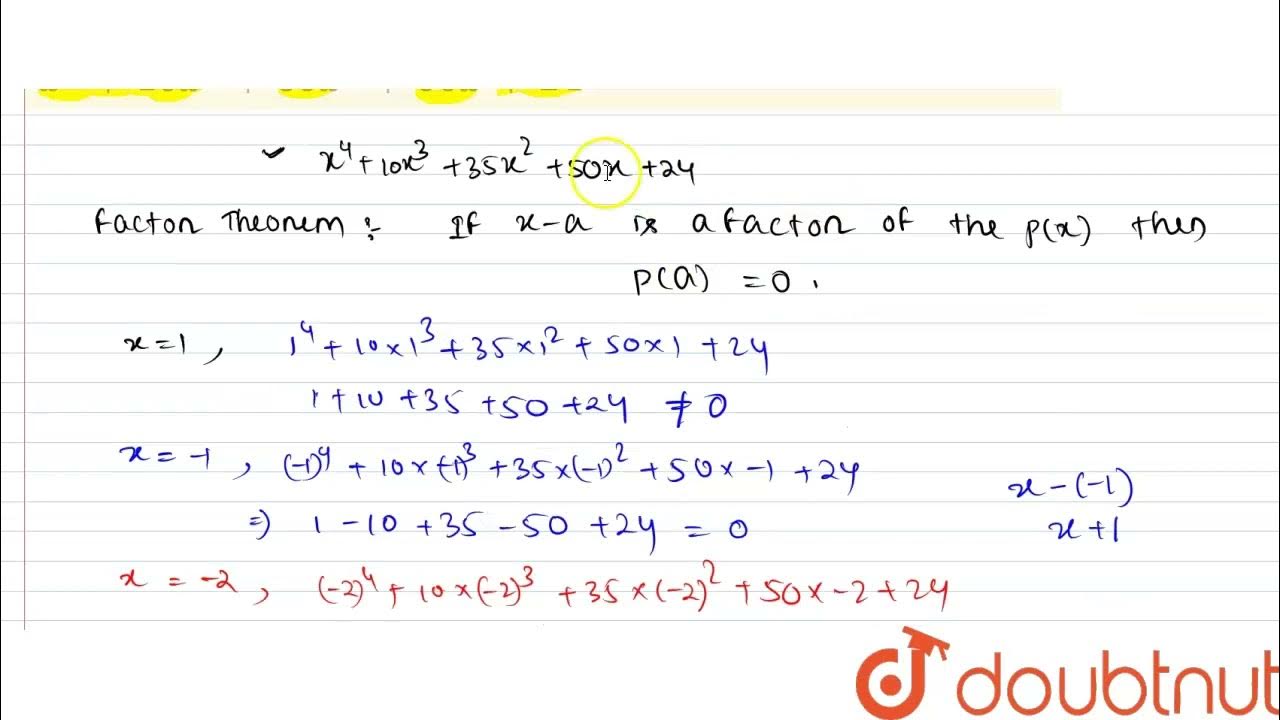 x⁴ + 10x³ + 35x² + 50x + 24
Factor Theorem :- If x-a is a factor of the p(x) then
p(a) = 0 .
x = 1 , 1⁴ + 10×1³ + 35×1² + 50×1 + 24
1 + 10 + 35 + 50 + 24 ≠ 0
x = -1 , (-1)⁴ + 10×(-1)³ + 35×(-1)² + 50×-1 + 24
x-(-1)
⇒) 1 - 10 + 35 - 50 + 24 = 0
x+1
x = -2 , (-2)⁴ + 10×(-2)³ + 35×(-2)² + 50×-2 + 24
doubtnut